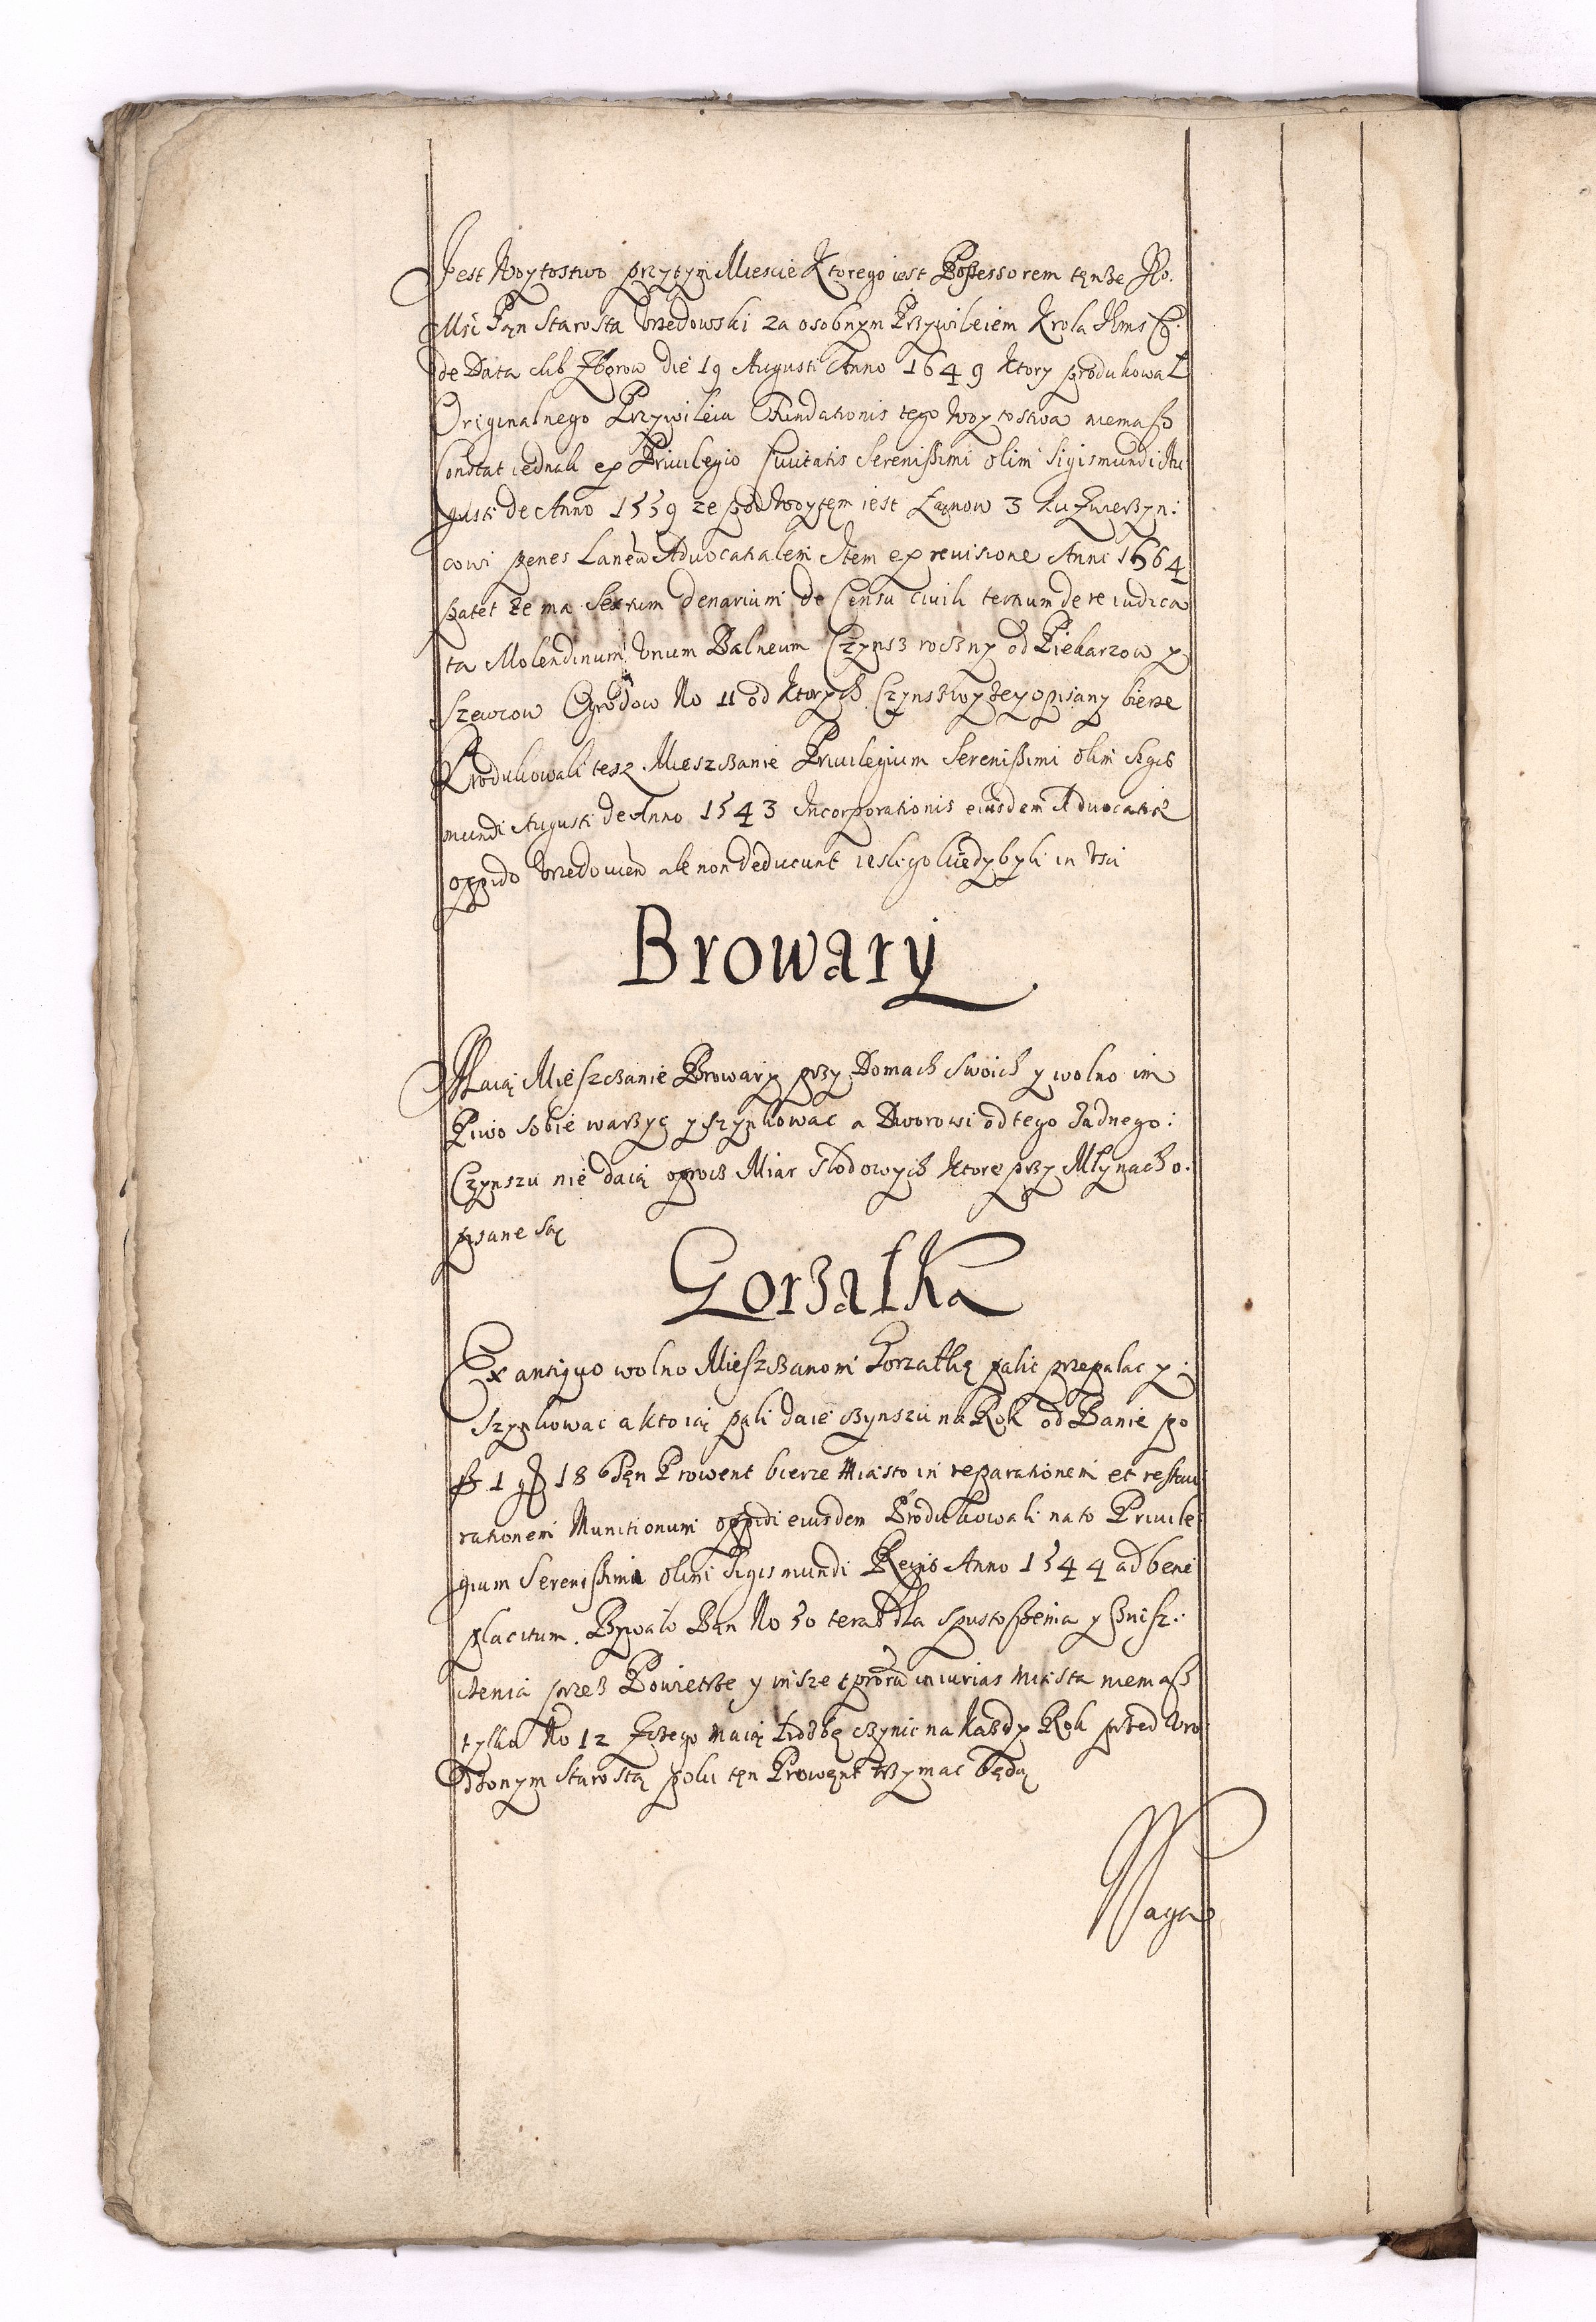 Jest Woytostwo przytym Miescie Ktorego iest Possessorem tęnze Jo.
Msc Pąn Starosta Vrzedowski za osobnym Przywileiem Krola Jkms
de Data sub Zborow die 19 Augusti Anno 1649 Ktory produkował
Originalnego Przywileiu Fundationis tego Woytostwa niemasz
Constat iednak ex Privilegio Civitatis Serenissimi olim Sigismundi Au
gusti de Anno 1559 ze pod Woytęm iest Łąnow 3 Ku Zwierzyn:
cowi penes Laneū Advocatialem Item ex revisione Anni 1664
patet ze ma Sextum denarium de Censu civili tertium de re iudica
ta Molendinum Vnum Balneum Czynsz roczny od Piekarzow y
Szewcow Ogrodow No 11 od Ktorych Czynsz wyżey opisany bierze
Produkowali tesz Mieszczanie Privilegium Serenissimi olim Sigis
mundi Augusti de Anno 1543 Incorporationis eiusdem Advocatiæ
oppido Vrzedovien ale non deducunt iesligo kiedy byli in Vsu
Browary
Maią Mieszczanie Browary przy Domach Swoich y wolno im
Piwo sobie warzyc y szynkowac a Dworowi od tego Żadnego:
Czynszu nie daią oprocz Miar Słodowych Ktore przy Młynach o.
pisane Są
Gorzałka
Ex antiquo wolno Mieszczanom Gorzałkę palic przepalac y:
szynkowac a kto ią pali daie czynszu na Rok od Banie po
fl 1 gr 18 Tęn Prowent bierze Miasto in reparationem et restau
rationem Munitionum oppidi eiusdem Produkowali na to Privile
gium Serenissimi olim Sigismundi Regis Anno 1544 ad bene
placitum. Bywało Bąn No 50 teraz dla Spustoszenia y znisz:
czenia przez Powietrze y insze iniurias Miasta niemasz
tylko No 12 Z czego maią Liczbę czynic na każdy Rok przed Vro
dzonym Starostą poki tęn Prowęnt trzymac będą
Waga